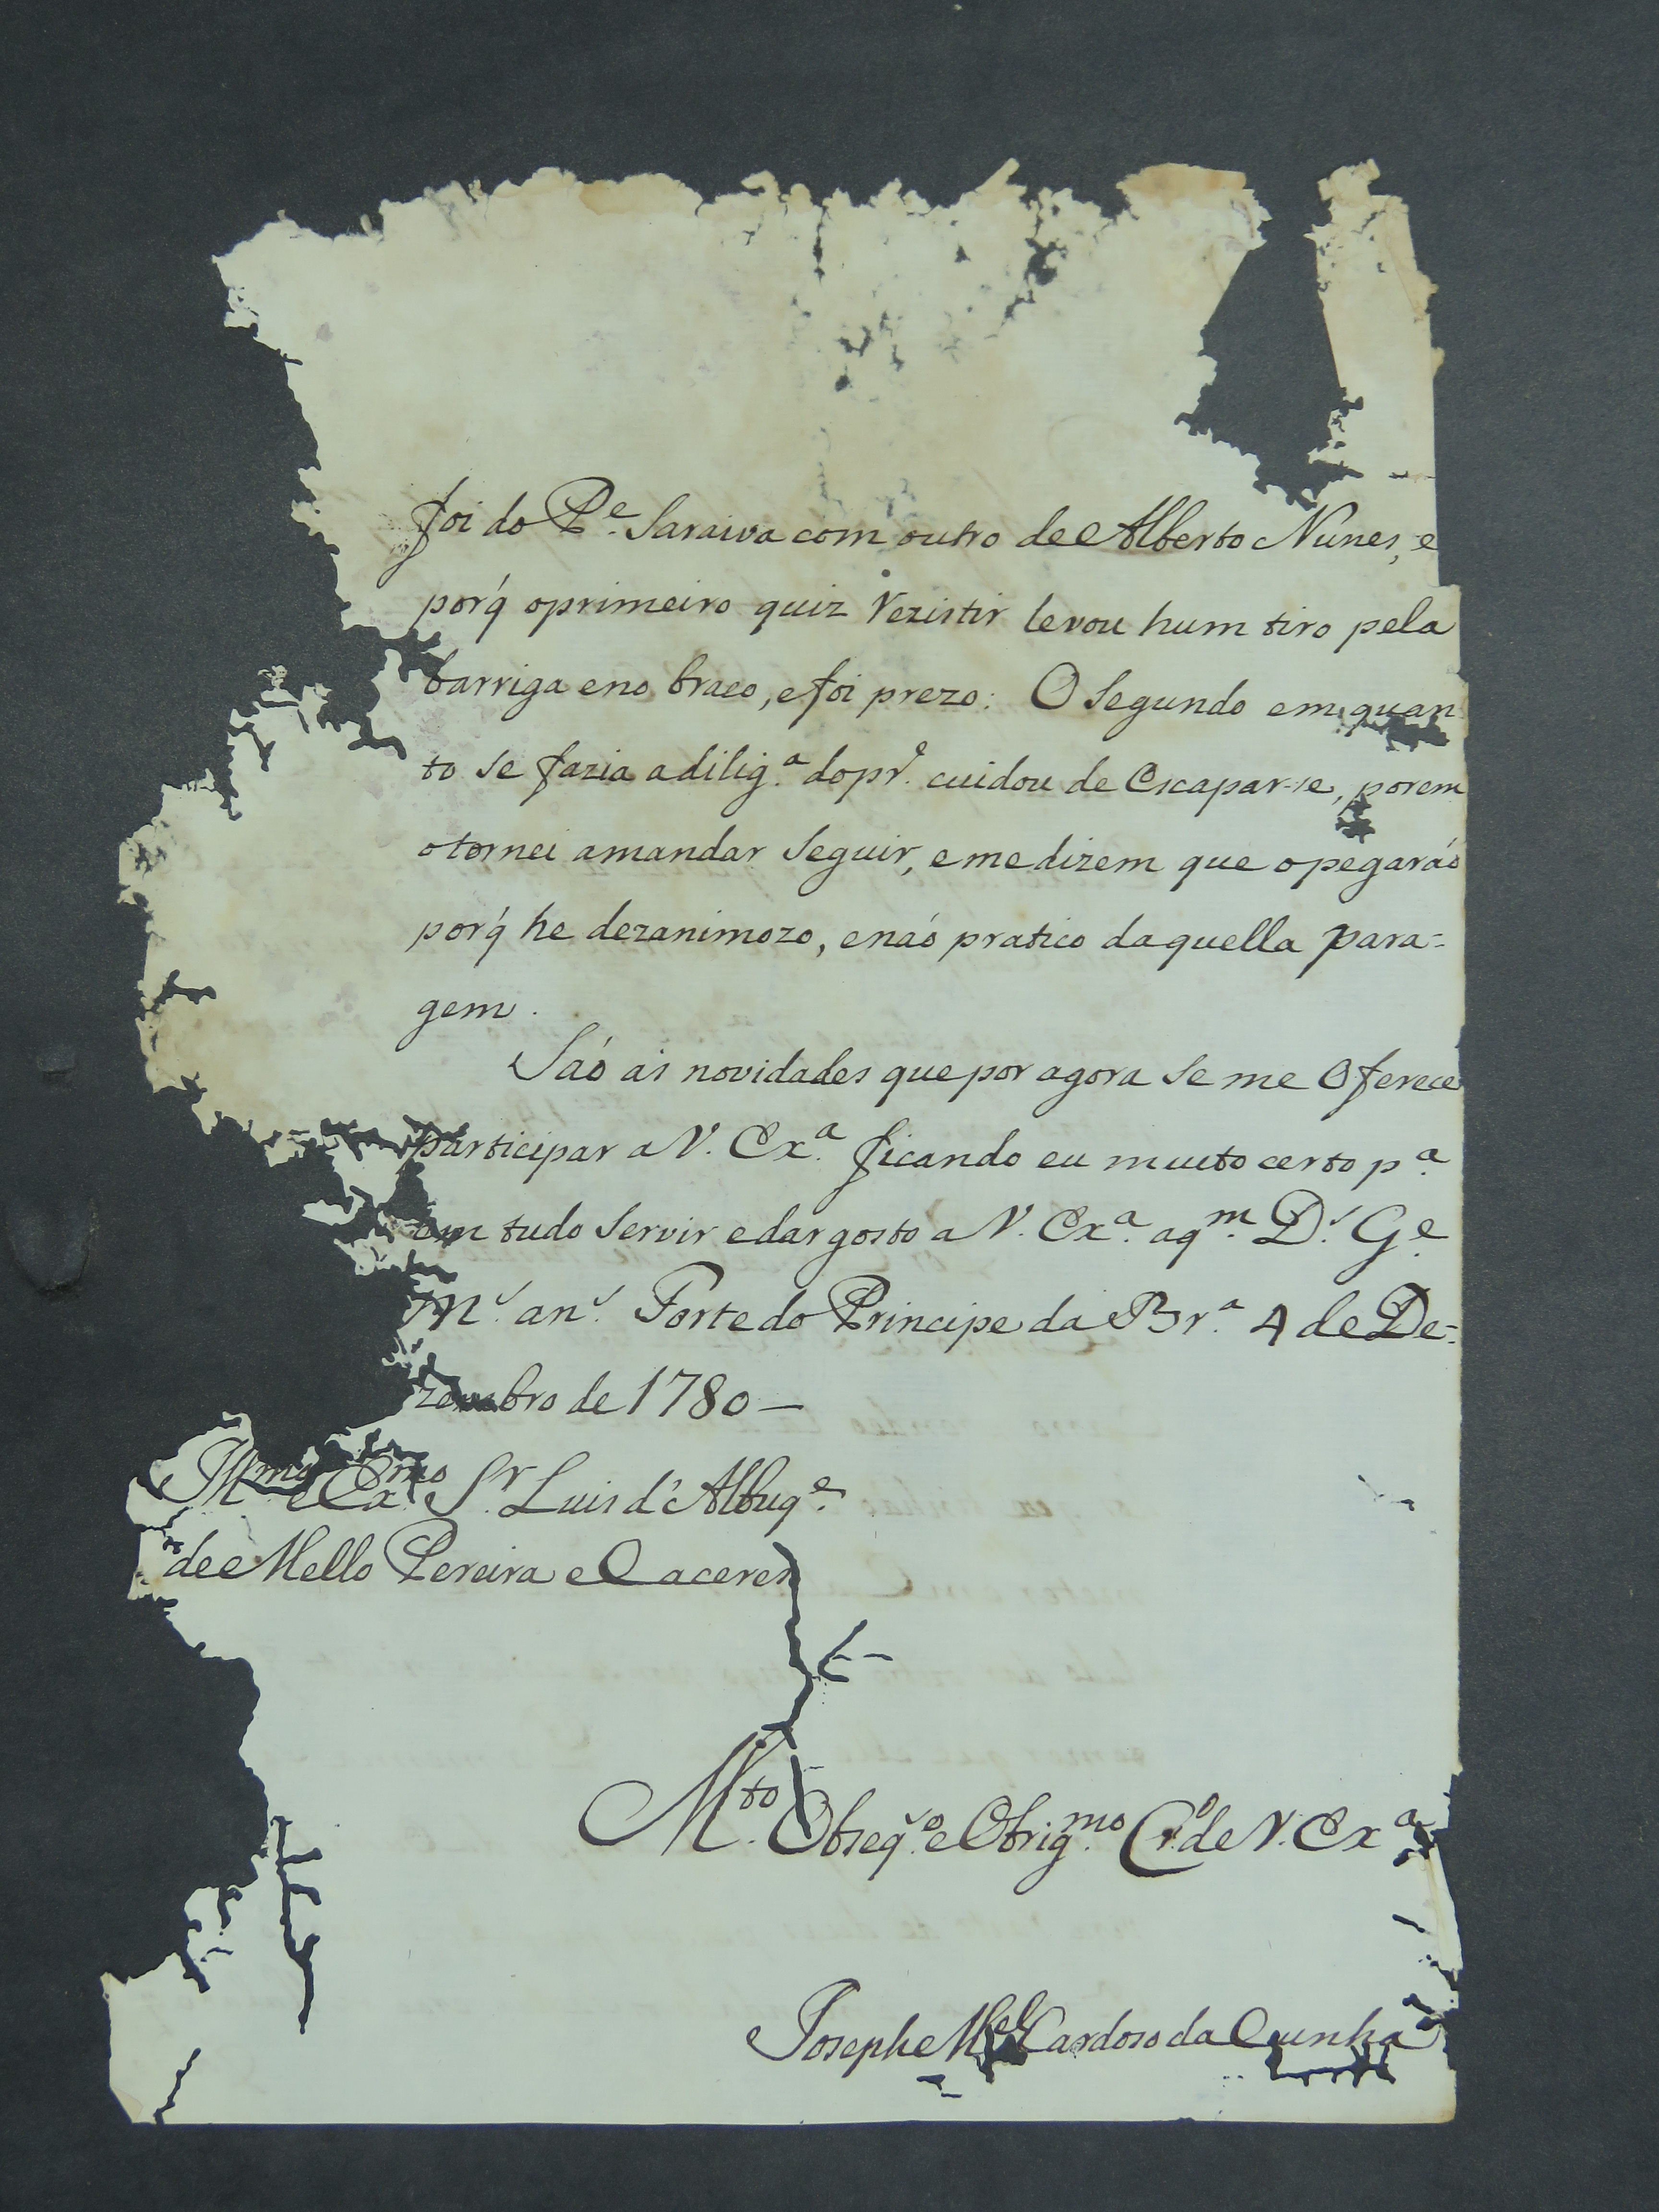 foi do P.e Saraiva com outro de Alberto Nunes, e
porq́ oprimeiro quiz rezistir levou hum tiro pela
barriga eno braco, e foi prezo: O Segundo em quan
to se fazia adilig.a dopr.o cuidou de Escapar-se, porem
otornei amandar Seguir, emedizem que opegaráõ
porq́ he dezanimozo, enaõ pratico daquella para=
gem.
Saõ as novidades quepor agora se me Oferece
participar aV. Ex.a ficando eu muito certo p.a
em tudo Servir edar gosto aV. Ex.a aq.m D.s G.e
M.s an.s Forte do Principe da Br.a 4 de De=
zembro de 1780 —
Ill.mo e Ex.mo S.r Luis d'Albuq.e
de Mello Pereira e Caceres
M.to Obseq.o e Obrig.mo Cr.o de V. Ex.a
Joseph M.el Cardoso da Cunha